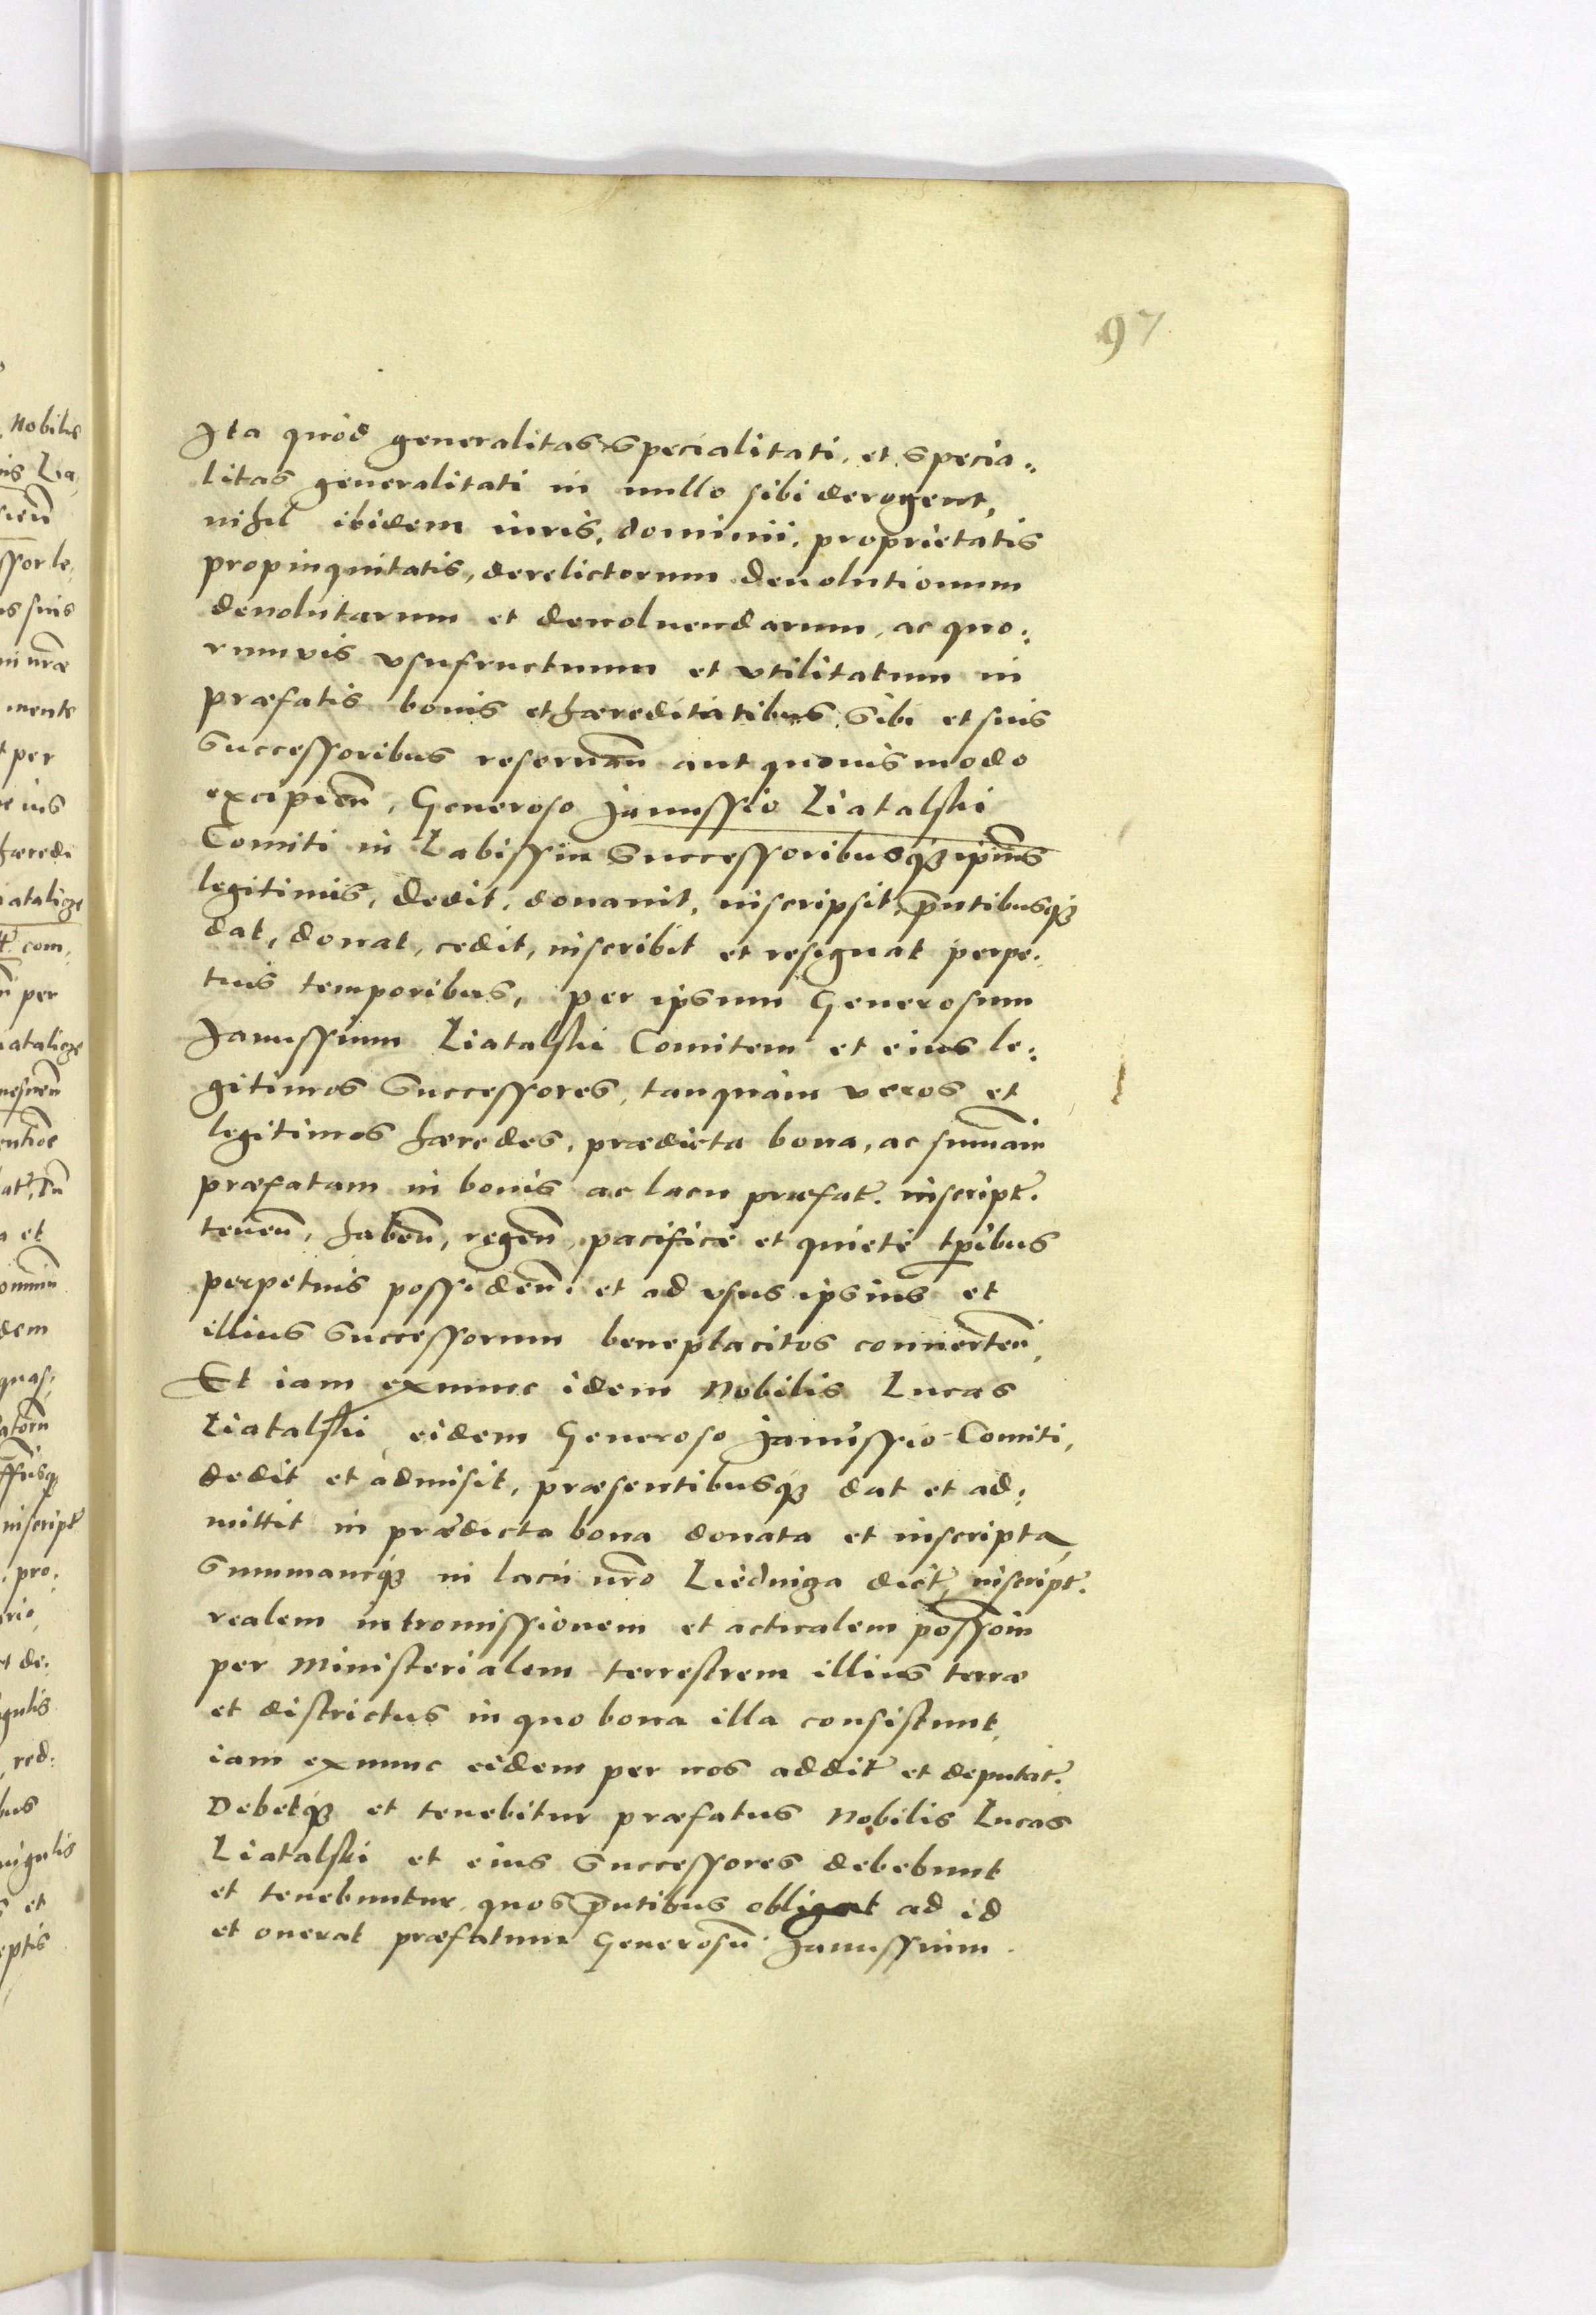 97
Ita quòd generalitas specialitati, et specia„
litas generalitati in nullo sibi derogent,
nihil ibidem iuris, dominii, proprietatis
propinquitatis, derelictorum deuolutionum
deuolutarum et deuoluendarum, ac quo„
rumvis vsufructuum et vtilitatum in
præfatis bonis et hæreditatibus, sibi et suis
successoribus reseruan̄ aut quouismodo
excipien̄, Generoso Janussio Liatalski
Comiti in Labissin successoribusq́ȝ ipiūs
legitimis, dedit, donauit, inscripsit, pn̄tibusq́ȝ
dat, donat, cedit, inscribit et resignat perpe„
tuis temporibus, per ipsum Generosum
Janussium Liatalski Comitem et eius le„
gitimos successores, tanquàm veros et
legitimos hæredes, prædicta bona, ac sum̄am
præfatam in bonis ac lacu præfat. inscript.
tenen̄, haben̄, regen̄, pacificè et quietè tp̄ribus
perpetuis possiden̄. et ad vsus ipsius et
illius successorum beneplacitos conuerten̄,
Et iam exnunc idem Nobilis Lucas
Liatalski, eidem Generoso Janussio Comiti,
dedit et admisit, præsentibusq́ȝ dat et ad„
mittit in prædicta bona donata et inscripta,
summamq́ȝ in lacu nr̄o Liedniga dict. inscript.
realem intromissionem et actualem possōm
per Ministerialem terrestrem illius terræ
et districtus in quo bona illa consistunt,
iam exnunc eidem per nos addit. et deputat.
Debetq́ȝ et tenebitur præfatus Nobilis Lucas
Liatalski et eius successores debebunt
et tenebuntur, quos pn̄tibus obligat ad id
et onerat præfatum Generosū Janussium.